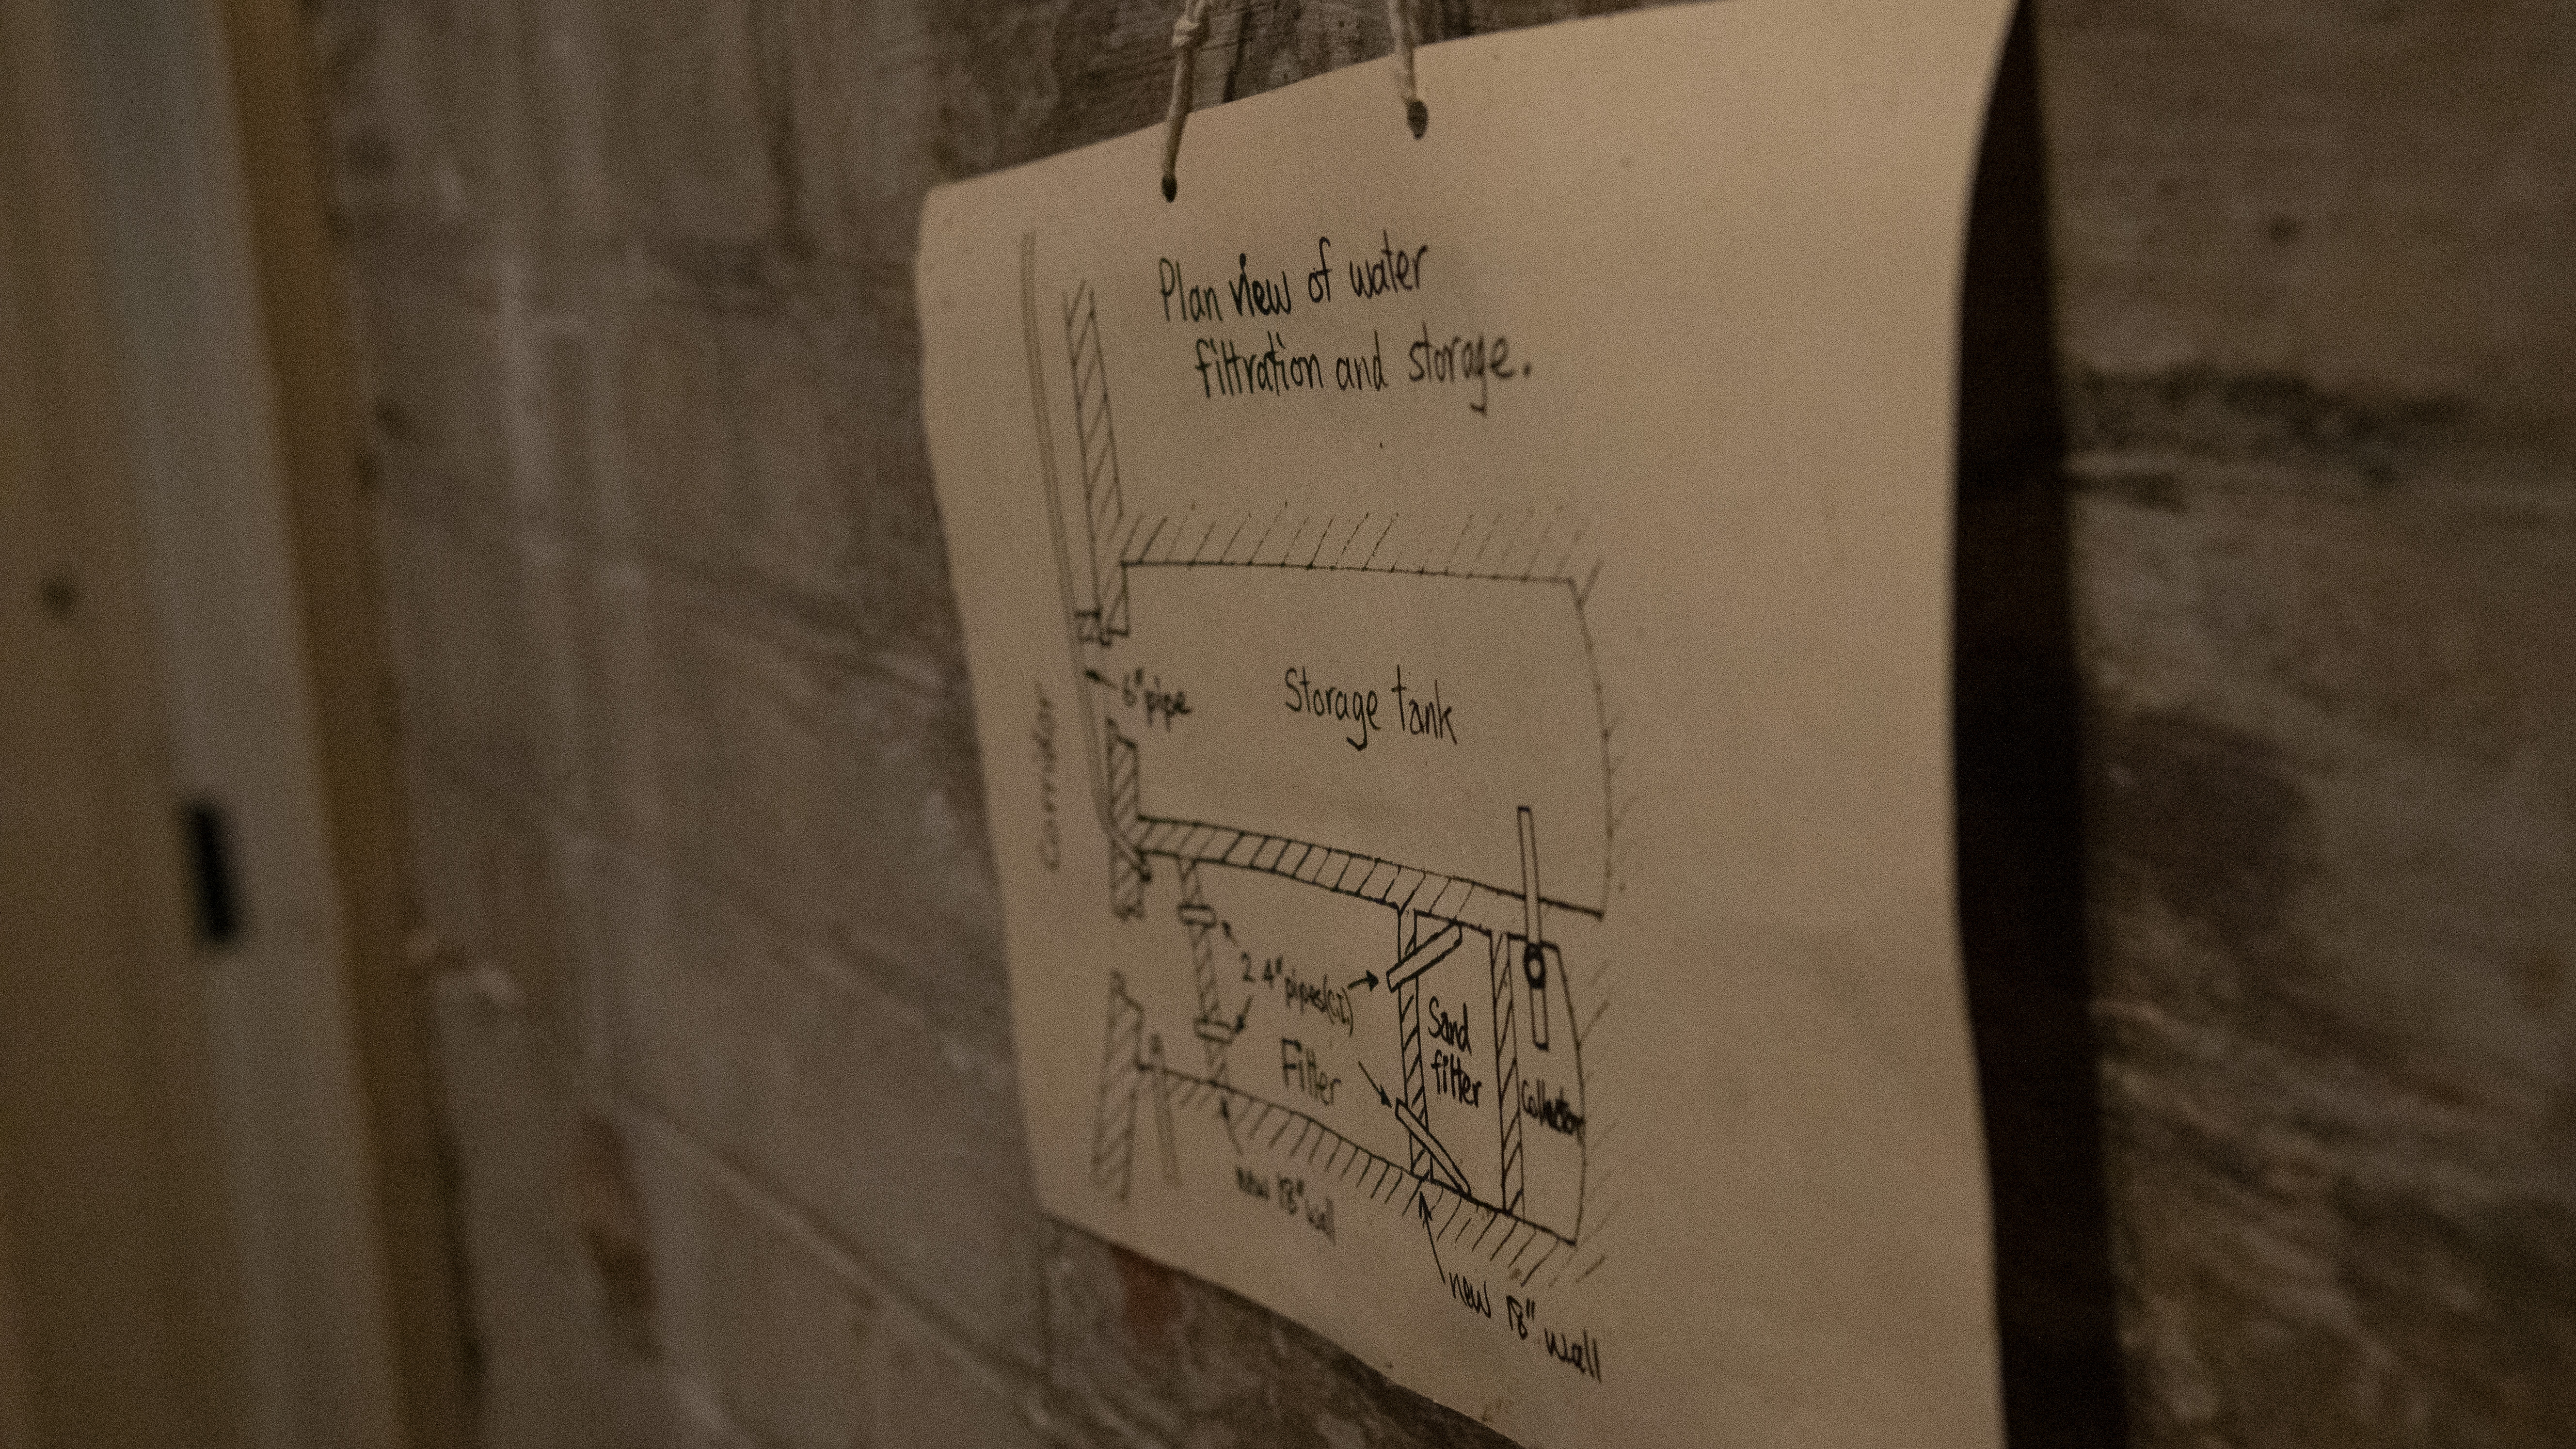 Plan view of water
filtration and storage.
6" pipe
Storage tank
Corridor
2 4" pipes (C.I.)
Sand
filter
Filter
Collector
new 18" wall
new 18" wall